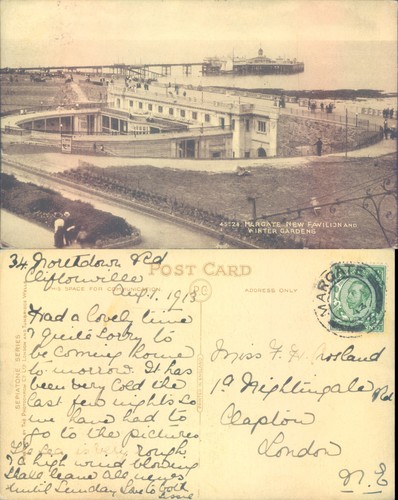 45724. MARGATE NEW PAVILION AND
WINTER GARDENS
34 Northdown Rd
Cliftonville
Aug. 1. 1913
POST CARD
THIS SPACE FOR COMMUNICATION
ADDRESS ONLY
Had a lovely time
& quite sorry to
be coming home
to morrow. It has
been very cold the
last few nights so
we have had to
go to the pictures
The sea is very rough
& a high wind blowing
Shall leave all news
until Sunday Love to both
Jessie
SEPIATONE SERIES
MARGATE
Miss F.
19 Nightingale Rd
Clapton
London
N.E